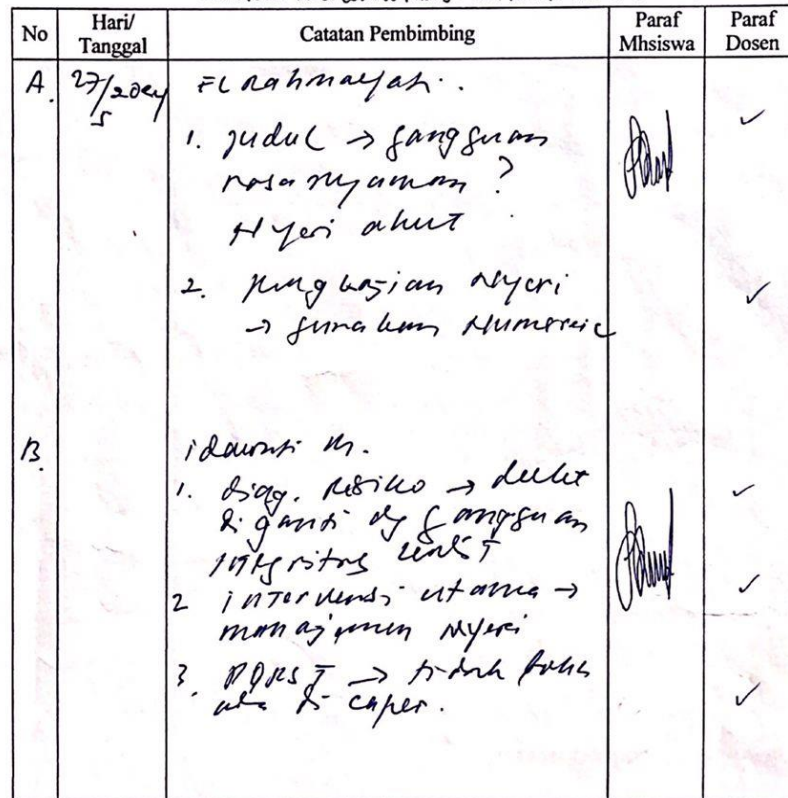 No Hari/ Tanggal Catatan Pembimbing Paraf Mhsiswa Paraf Dosen
A. 27/5 2024 El Rahmayati.
1. judul → gangguan
rasa nyaman ?
Nyeri akut
2. pengkajian Nyeri
→ gunakan Numeric
B. idawati M.
1. diag. Resiko →
diganti dg gangguan
integritas kulit
2 intervensi utama →
manajemen Nyeri
3. PQRST → tidak
ada di